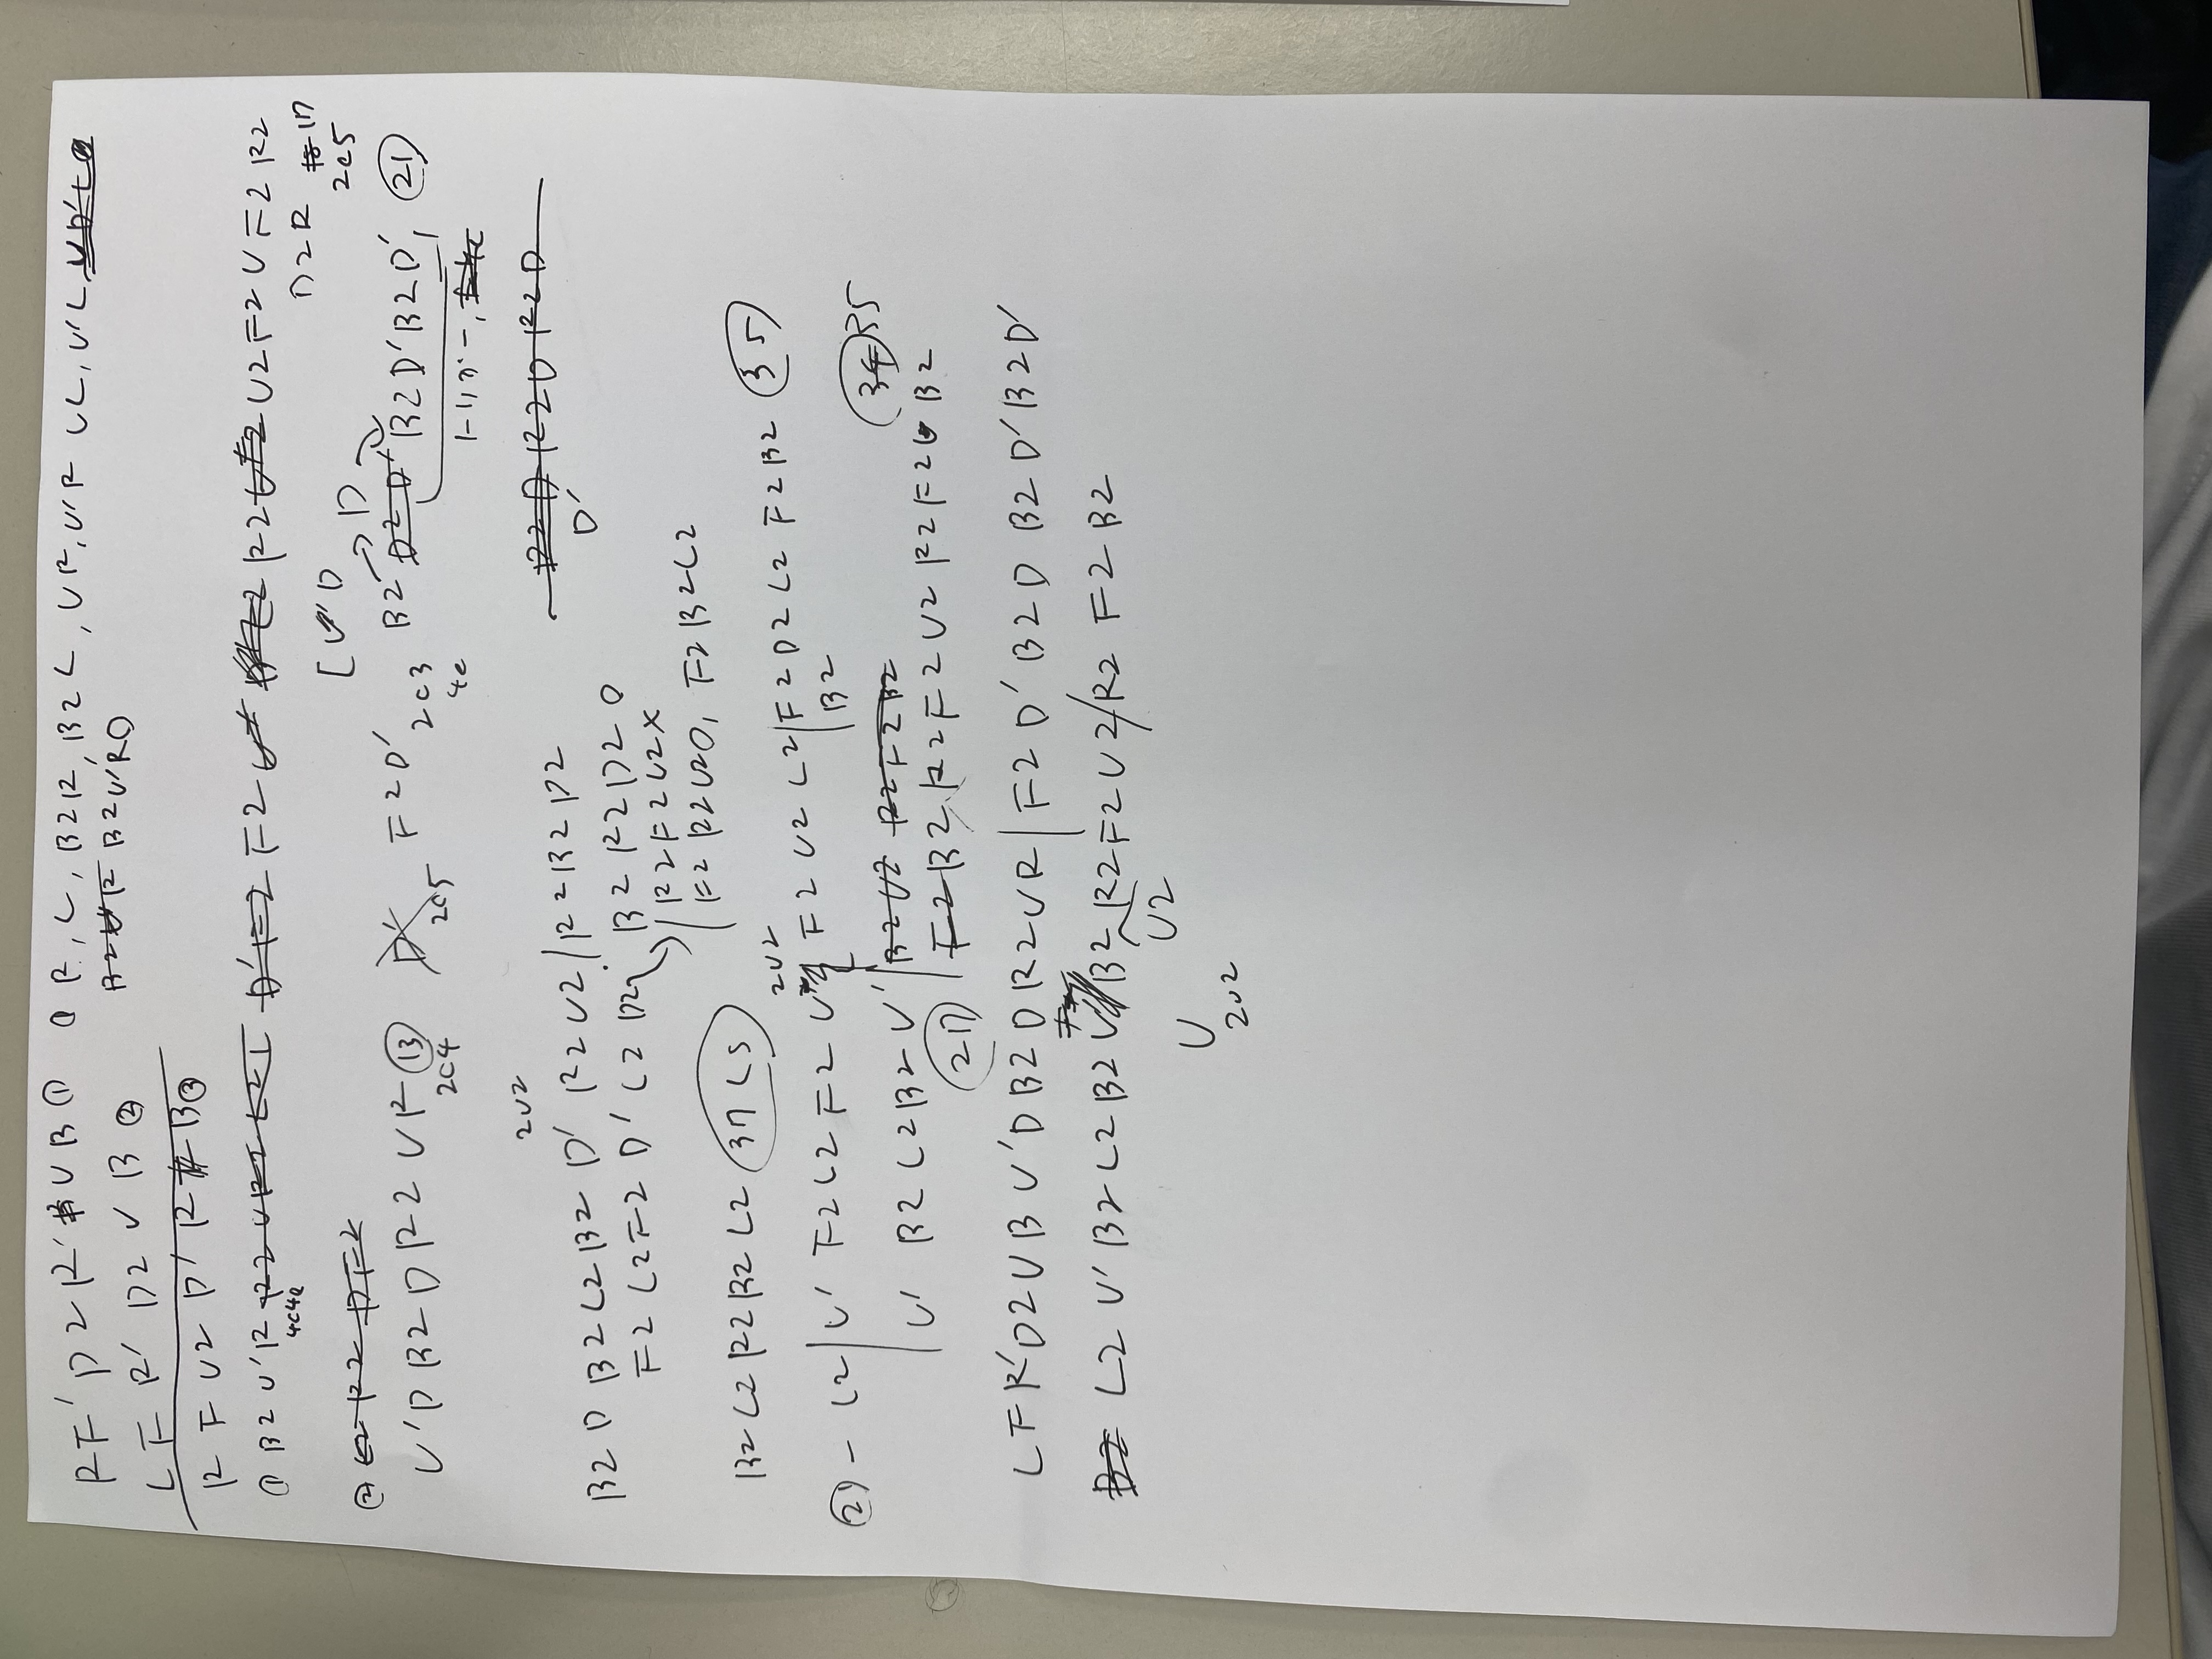 R F' D2 R' U B ① ① R, L, B2R, B2L, UR, U'R UL, U'L
L F R' D2 U B ② B2U'R
R F U2 D' R B ③
① B2 U' R F2 R2 U2 F2 U F2 R2
4c4e D2R
2c5
② L2 R2 D F2 [U'D
U' D B2 D R2 U R ⑬ F2 D' B2 D B2 D' B2 D' ㉑
2c4 2c5 2c3
4e
D'
2v2
B2 D B2 L2 B2 D' R2 U2 / R2 B2 D2
F2 L2 F2 D' L2 D2 B2 R2 D2 O
R2 F2 U2 X
F2 R2 U2 O, F2 B2 L2
B2 L2 R2 B2 L2
2v2
② - L2 / U' F2 L2 F2 U F2 U2 L2 / F2 D2 L2 F2 B2 ㉟
B2
U' B2 L2 B2 U' B2 R2 F2 U2 R2 F2 B2 35
L F R' D2 U B U' D B2 D R2 U R / F2 D' B2 D B2 D' B2 D'
L2 U' B2 L2 B2 U B2 R2 F2 U2 / R2 F2 B2
U2
U
2v2